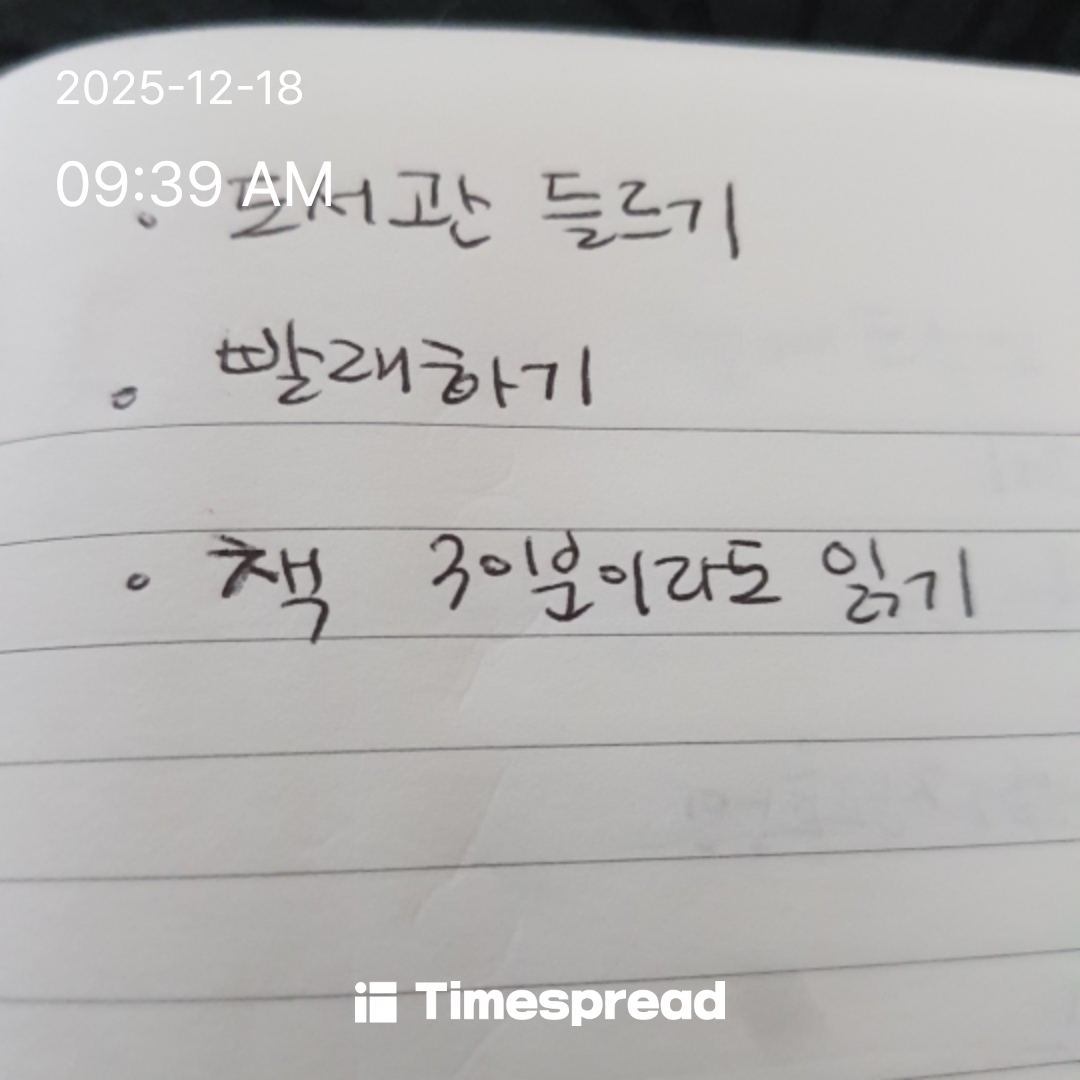 2025-12-18
09:39 AM
• 도서관 들르기
• 빨래하기
• 책 30분이라도 읽기
Timespread